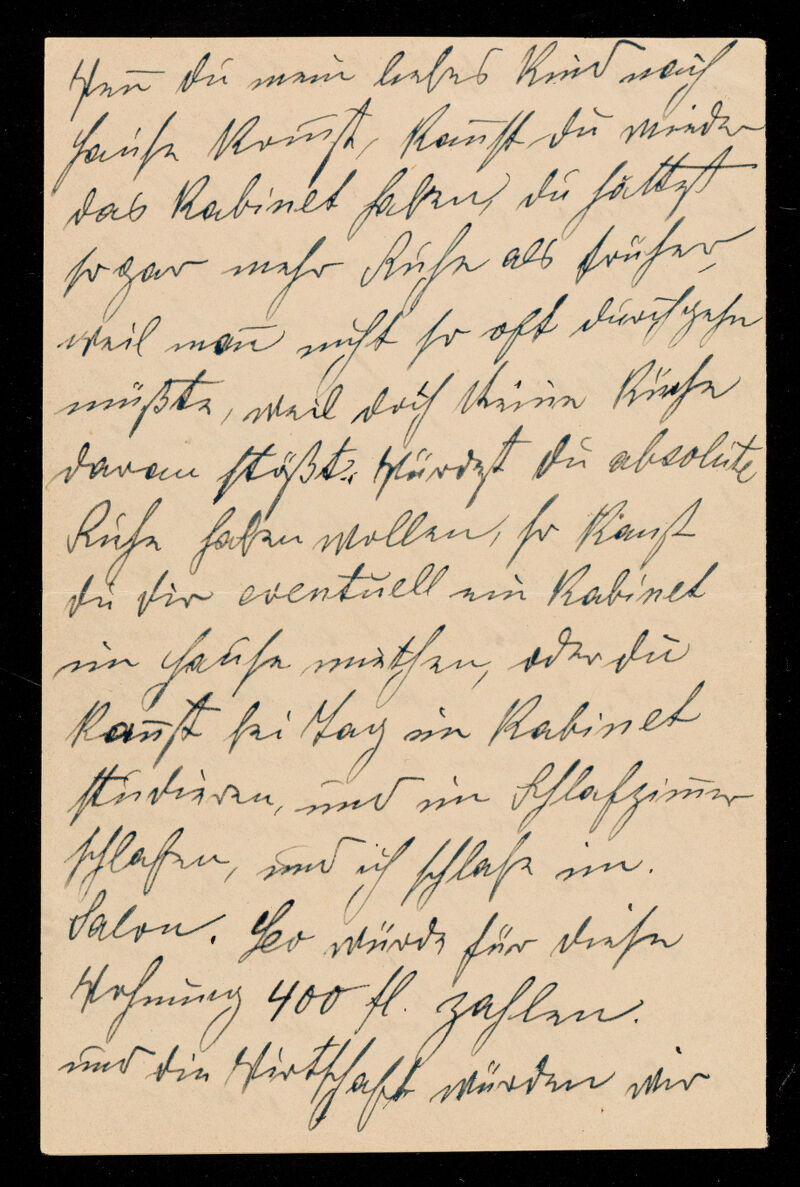 Wen̅ du mein liebes Kind nach
Hause kom̅st, kan̅st du wieder
das Kabinet haben, du hättest
sogar mehr Ruhe als früher,
weil man̅ nicht so oft durchgehn
müßte, weil doch keine Küche
daran stößt. Würdest du absolute
Ruhe haben wollen, so kanst
du dir eventuell ein Kabinet
im Hause miethen, oder du
kan̅st bei Tag im Kabinet
studieren, und im Schlafzim̅er
schlafen, und ich schlafe im.
Salon. Leo würde für diese
Wohnung 400 fl. zahlen.
und die Wirtschaft würden wir